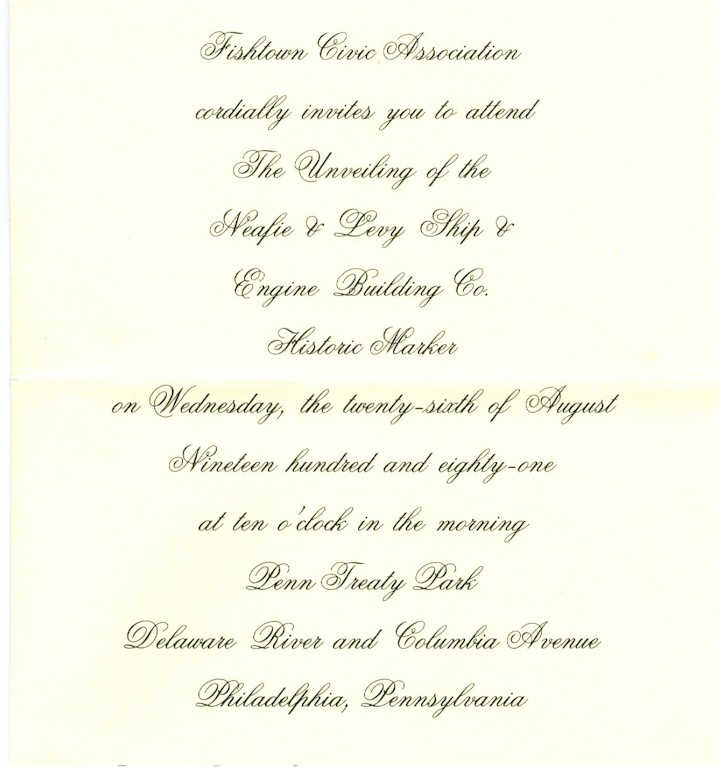 Fishtown Civic Association
cordially invites you to attend
The Unveiling of the
Neafie & Levy Ship &
Engine Building Co.
Historic Marker
on Wednesday, the twenty-sixth of August
Nineteen hundred and eighty-one
at ten o'clock in the morning
Penn Treaty Park
Delaware River and Columbia Avenue
Philadelphia, Pennsylvania